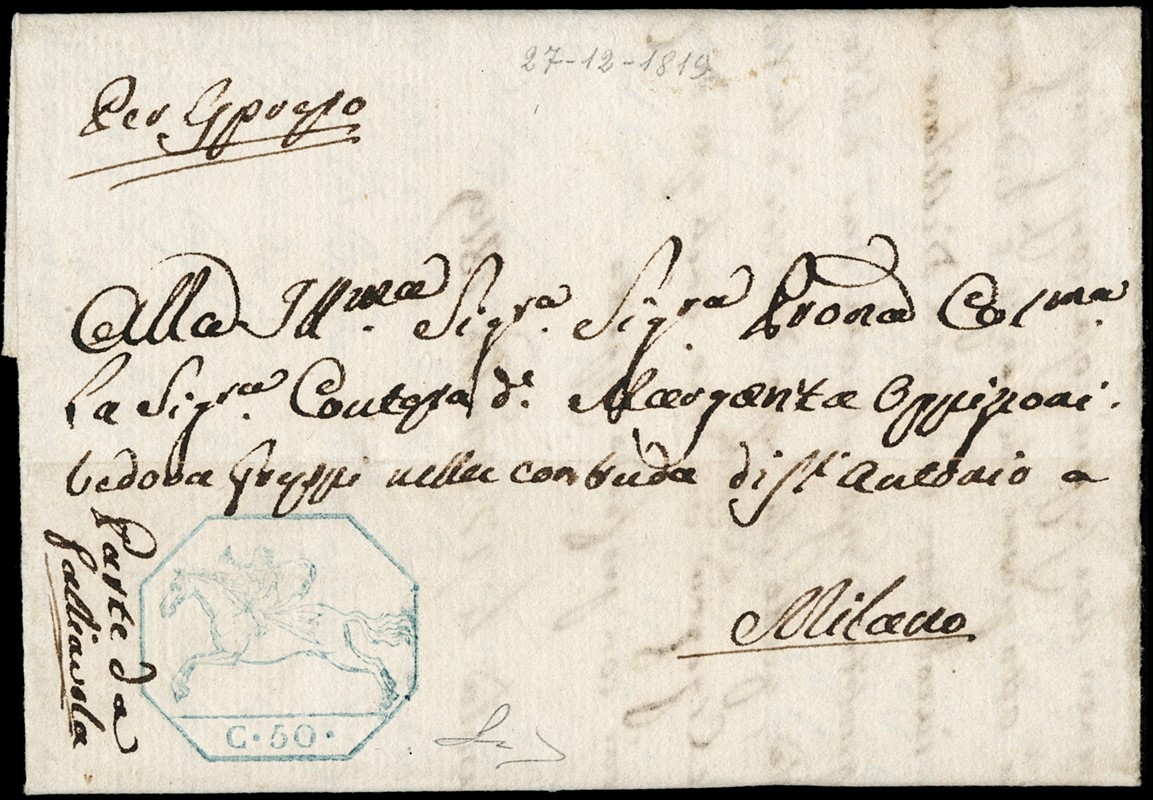 27-12-1819
Per Espresso
Alla Ill.ma Sig.ra Sig.ra Prona Col.ma
La Sig.ra Contessa D.a Margarita Oppizzoni
vedova Greppi nella contrada di S.t Antonio a
Milano
Parte da
Galliavola
C · 50 ·